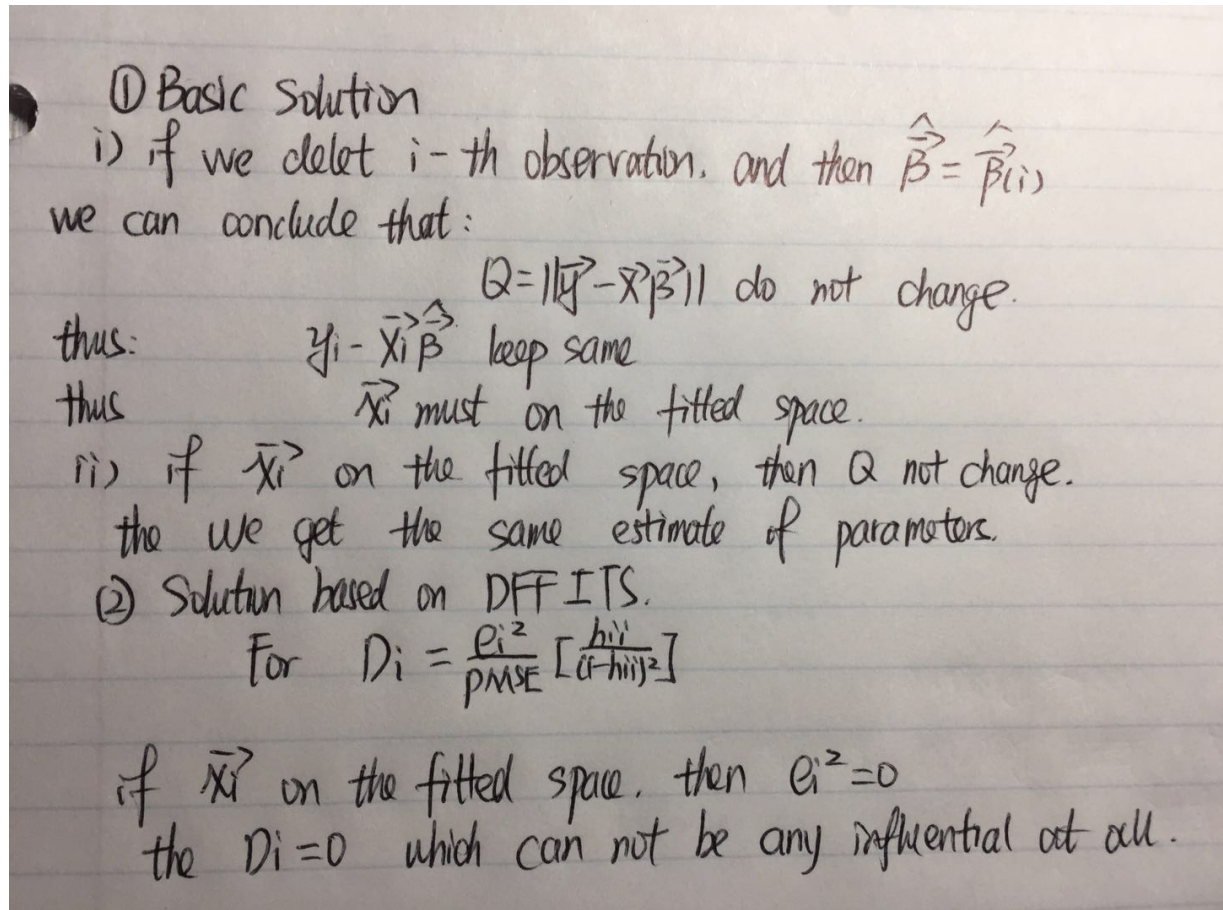 ① Basic Solution
i) if we delet i-th observation. and then $\hat{\vec{\beta}} = \hat{\vec{\beta}}_{(i)}$
we can conclude that:
$Q = ||\vec{y} - \vec{x}\vec{\beta}||$ do not change.
thus: $y_i - \vec{x_i}\hat{\vec{\beta}}$ keep same
thus $\vec{x_i}$ must on the fitted space.
ii) if $\vec{x_i}$ on the fitted space, then Q not change.
the we get the same estimate of parameters.
② Solution based on DFFITS.
For $D_i = \frac{e_i^2}{PMSE} [\frac{h_{ii}}{(1-h_{ii})^2}]$
if $\vec{x_i}$ on the fitted space. then $e_i^2 = 0$
the $D_i = 0$ which can not be any influential at all.